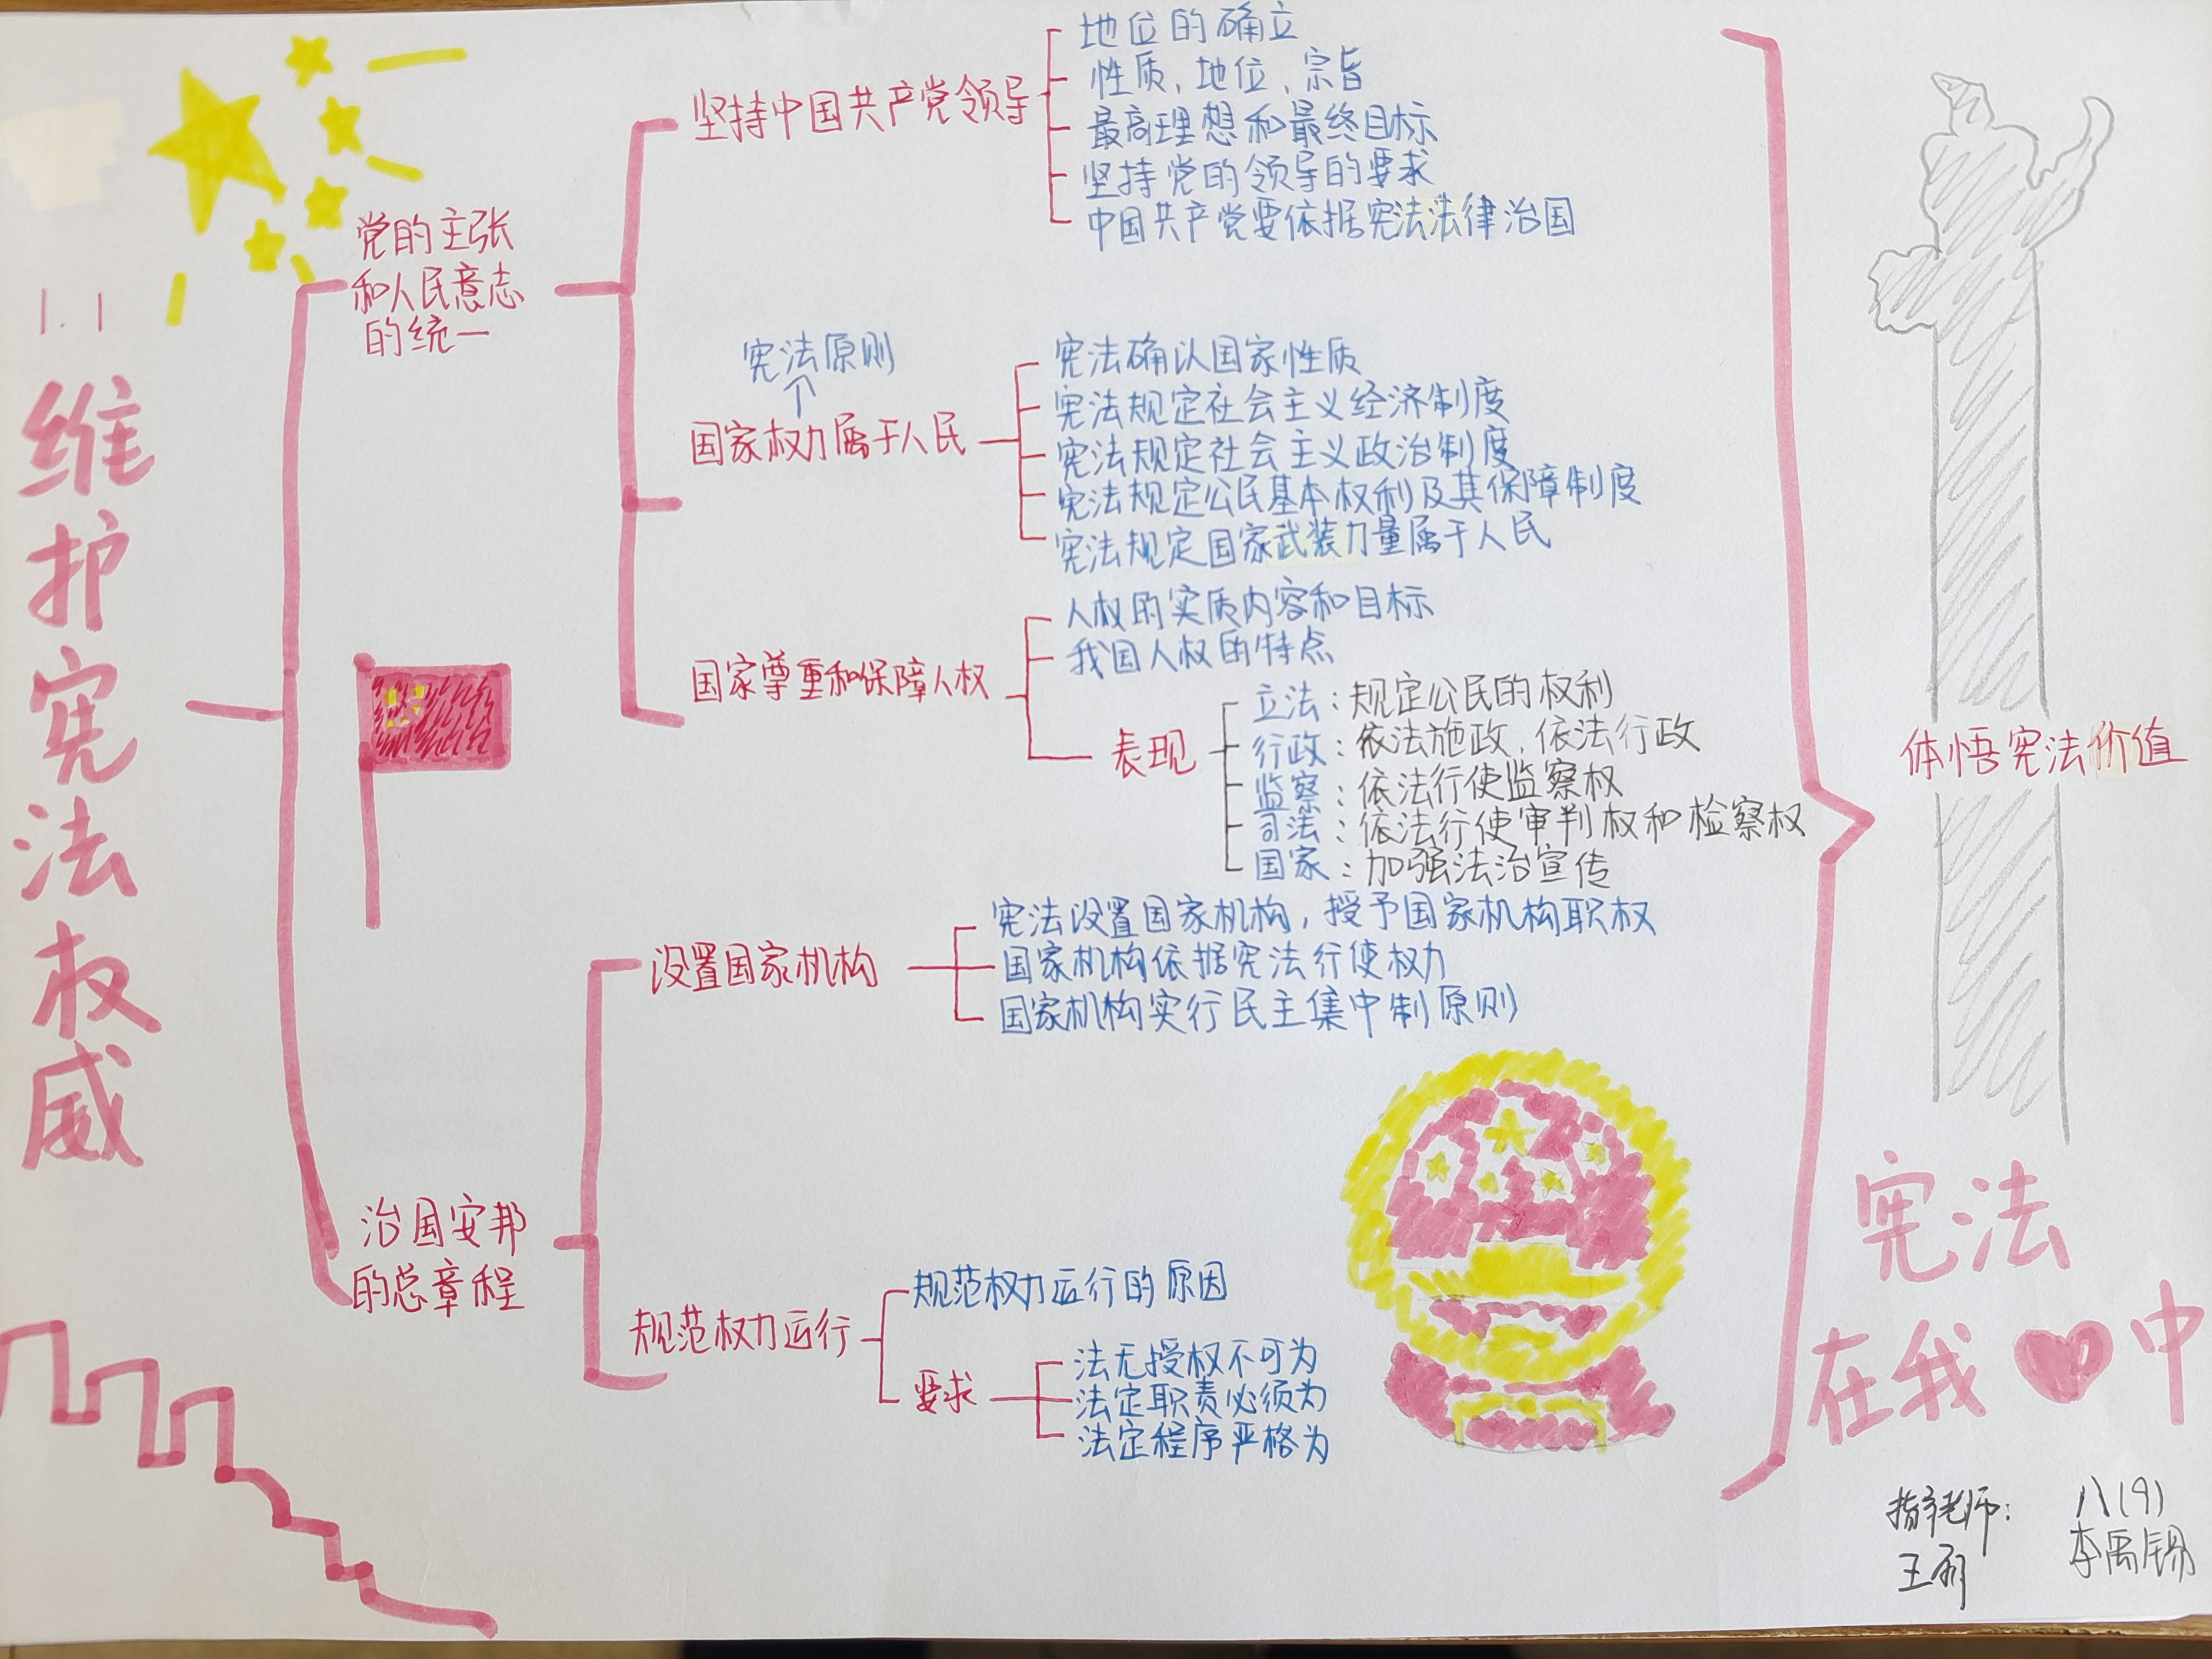 1.1
维护宪法权威
党的主张
和人民意志
的统一
坚持中国共产党领导
地位的确立
性质,地位,宗旨
最高理想和最终目标
坚持党的领导的要求
中国共产党要依据宪法法律治国
宪法原则
↑
国家权力属于人民
宪法确认国家性质
宪法规定社会主义经济制度
宪法规定社会主义政治制度
宪法规定公民基本权利及其保障制度
宪法规定国家武装力量属于人民
国家尊重和保障人权
人权的实质内容和目标
我国人权的特点
表现
立法:规定公民的权利
行政:依法施政,依法行政
监察:依法行使监察权
司法:依法行使审判权和检察权
国家:加强法治宣传
治国安邦
的总章程
设置国家机构
宪法设置国家机构,授予国家机构职权
国家机构依据宪法行使权力
国家机构实行民主集中制原则
规范权力运行
规范权力运行的原因
要求
法无授权不可为
法定职责必须为
法定程序严格为
体悟宪法价值
宪法
在我❤中
指导老师:
王
八(9)
李禹锡